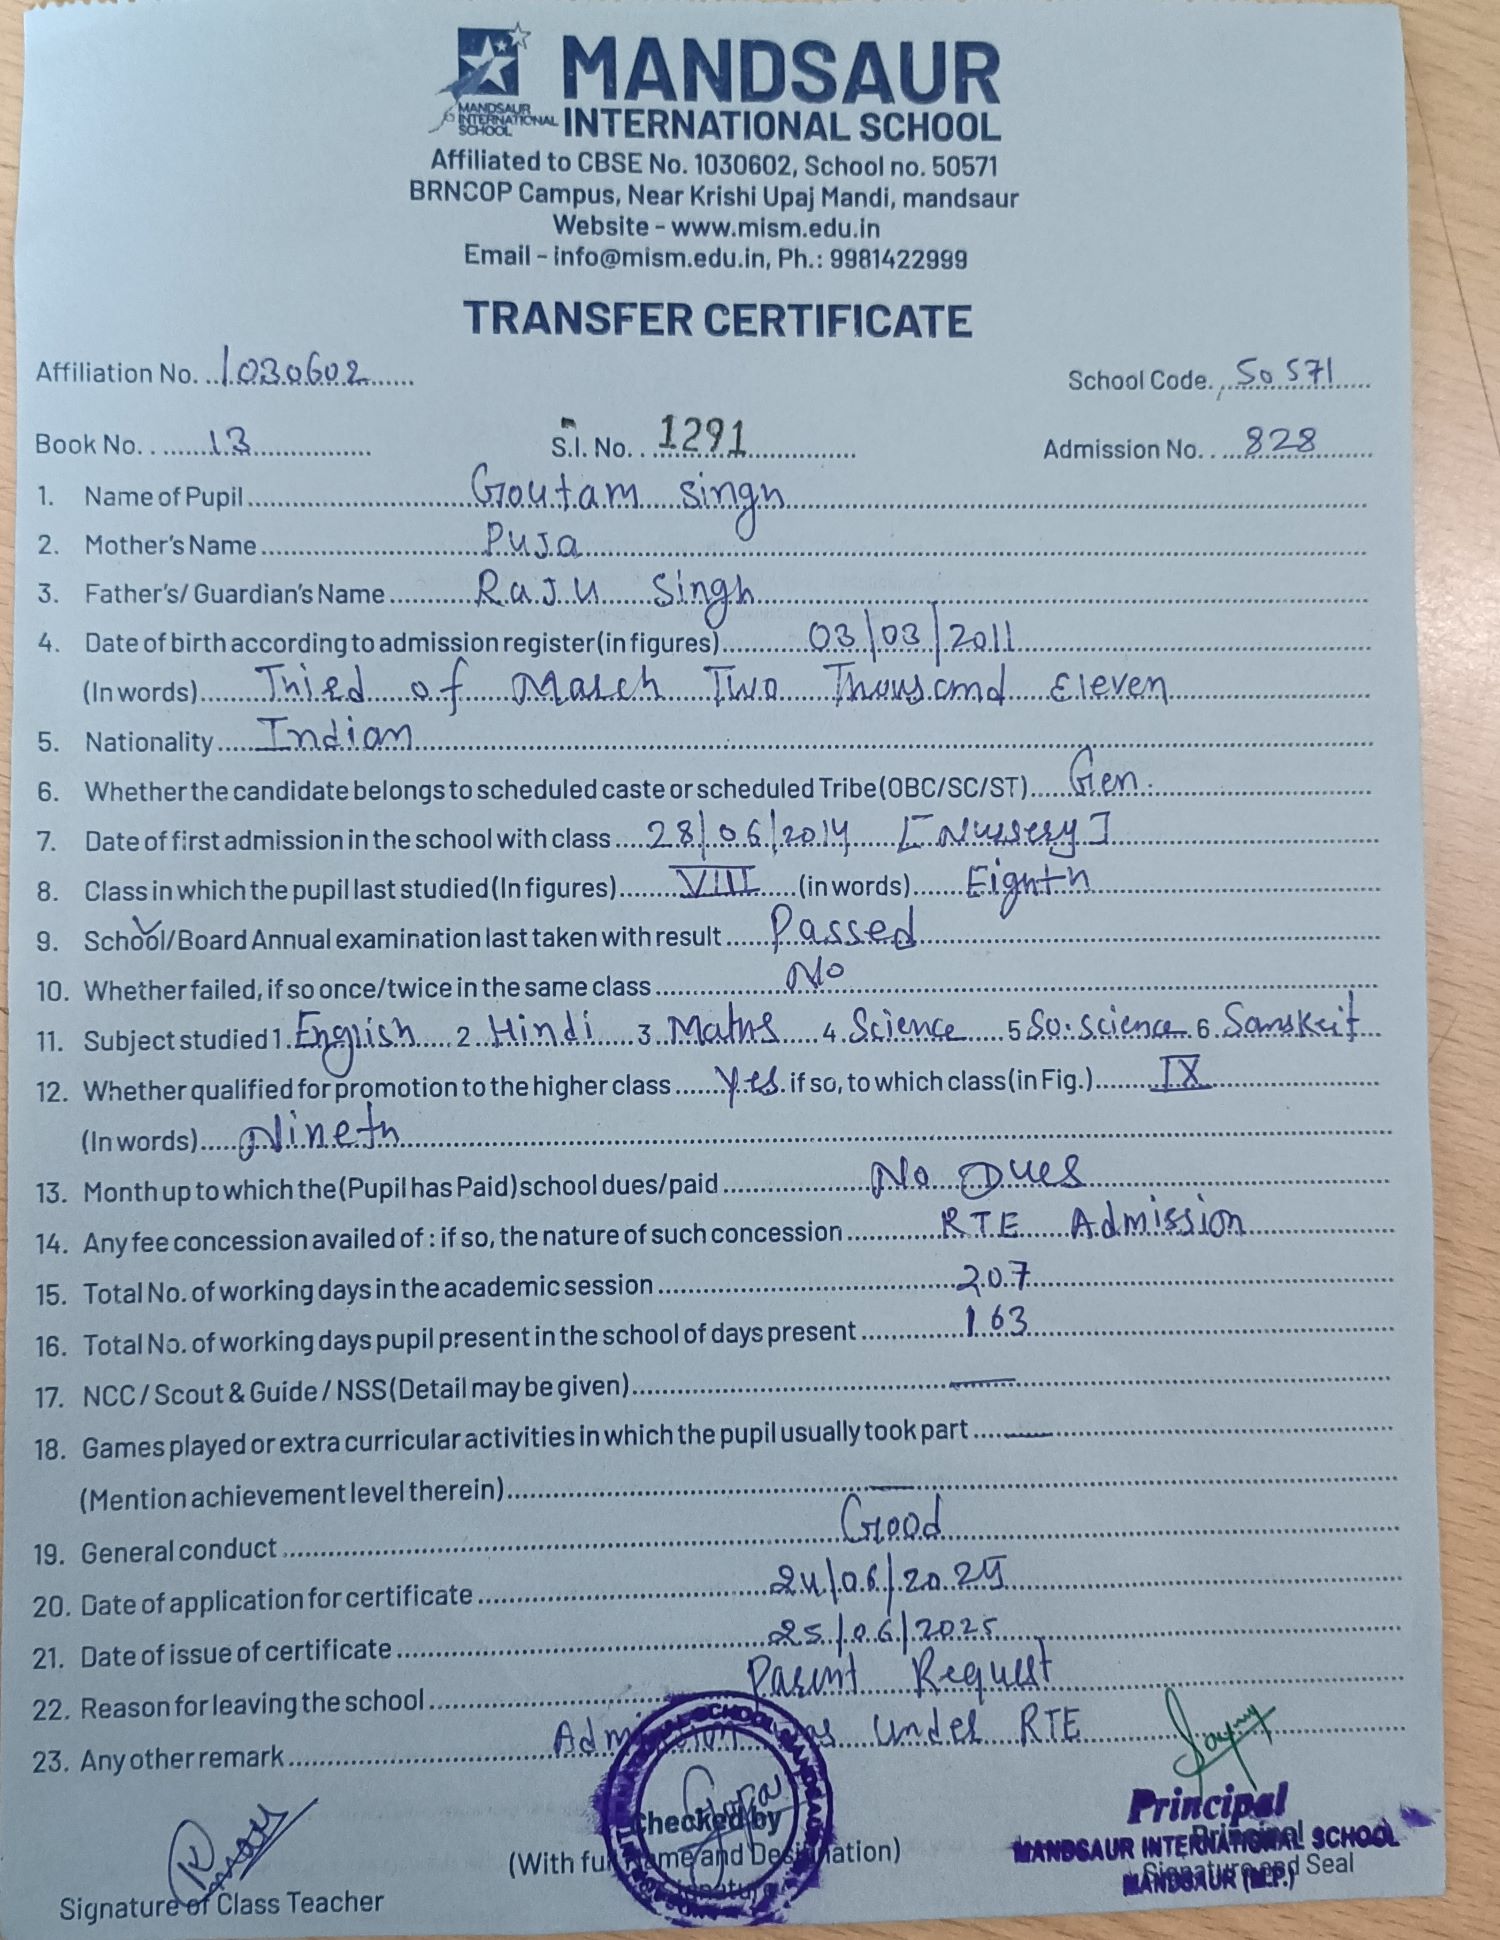 MANDSAUR
INTERNATIONAL SCHOOL
MANDSAUR
INTERNATIONAL
SCHOOL
Affiliated to CBSE No. 1030602, School no. 50571
BRNCOP Campus, Near Krishi Upaj Mandi, mandsaur
Website - www.mism.edu.in
Email - info@mism.edu.in, Ph.: 9981422999
TRANSFER CERTIFICATE
Affiliation No. 1030602 School Code. 50571
Book No. 13 S.I. No. 1291 Admission No. 828
1. Name of Pupil Goutam singh
2. Mother's Name Puja
3. Father's/ Guardian's Name Raju Singh
4. Date of birth according to admission register(in figures) 03/03/2011
(In words) Third of March Two Thousand Eleven
5. Nationality Indian
6. Whether the candidate belongs to scheduled caste or scheduled Tribe(OBC/SC/ST) Gen.
7. Date of first admission in the school with class 28/06/2014 [Nursery]
8. Class in which the pupil last studied(In figures) VIII (in words) Eighth
9. School/Board Annual examination last taken with result Passed
10. Whether failed, if so once/twice in the same class No
11. Subject studied 1. English 2. Hindi 3. Maths 4. Science 5 So. science 6. Sanskrit
12. Whether qualified for promotion to the higher class Yes if so, to which class(in Fig.) IX
(In words) Nineth
13. Month up to which the(Pupil has Paid)school dues/paid No Dues
14. Any fee concession availed of : if so, the nature of such concession RTE Admission
15. Total No. of working days in the academic session 207
16. Total No. of working days pupil present in the school of days present 163
17. NCC / Scout & Guide / NSS(Detail may be given)
18. Games played or extra curricular activities in which the pupil usually took part
(Mention achievement level therein)
19. General conduct Good
20. Date of application for certificate 24/06/2025
21. Date of issue of certificate 25/06/2025
22. Reason for leaving the school Parent Request
23. Any other remark Admission was under RTE
Checked by
(With full name and Designation)
Signature of Class Teacher
Principal
MANDSAUR INTERNATIONAL SCHOOL
MANDSAUR (M.P.)
Principal
Signature and Seal